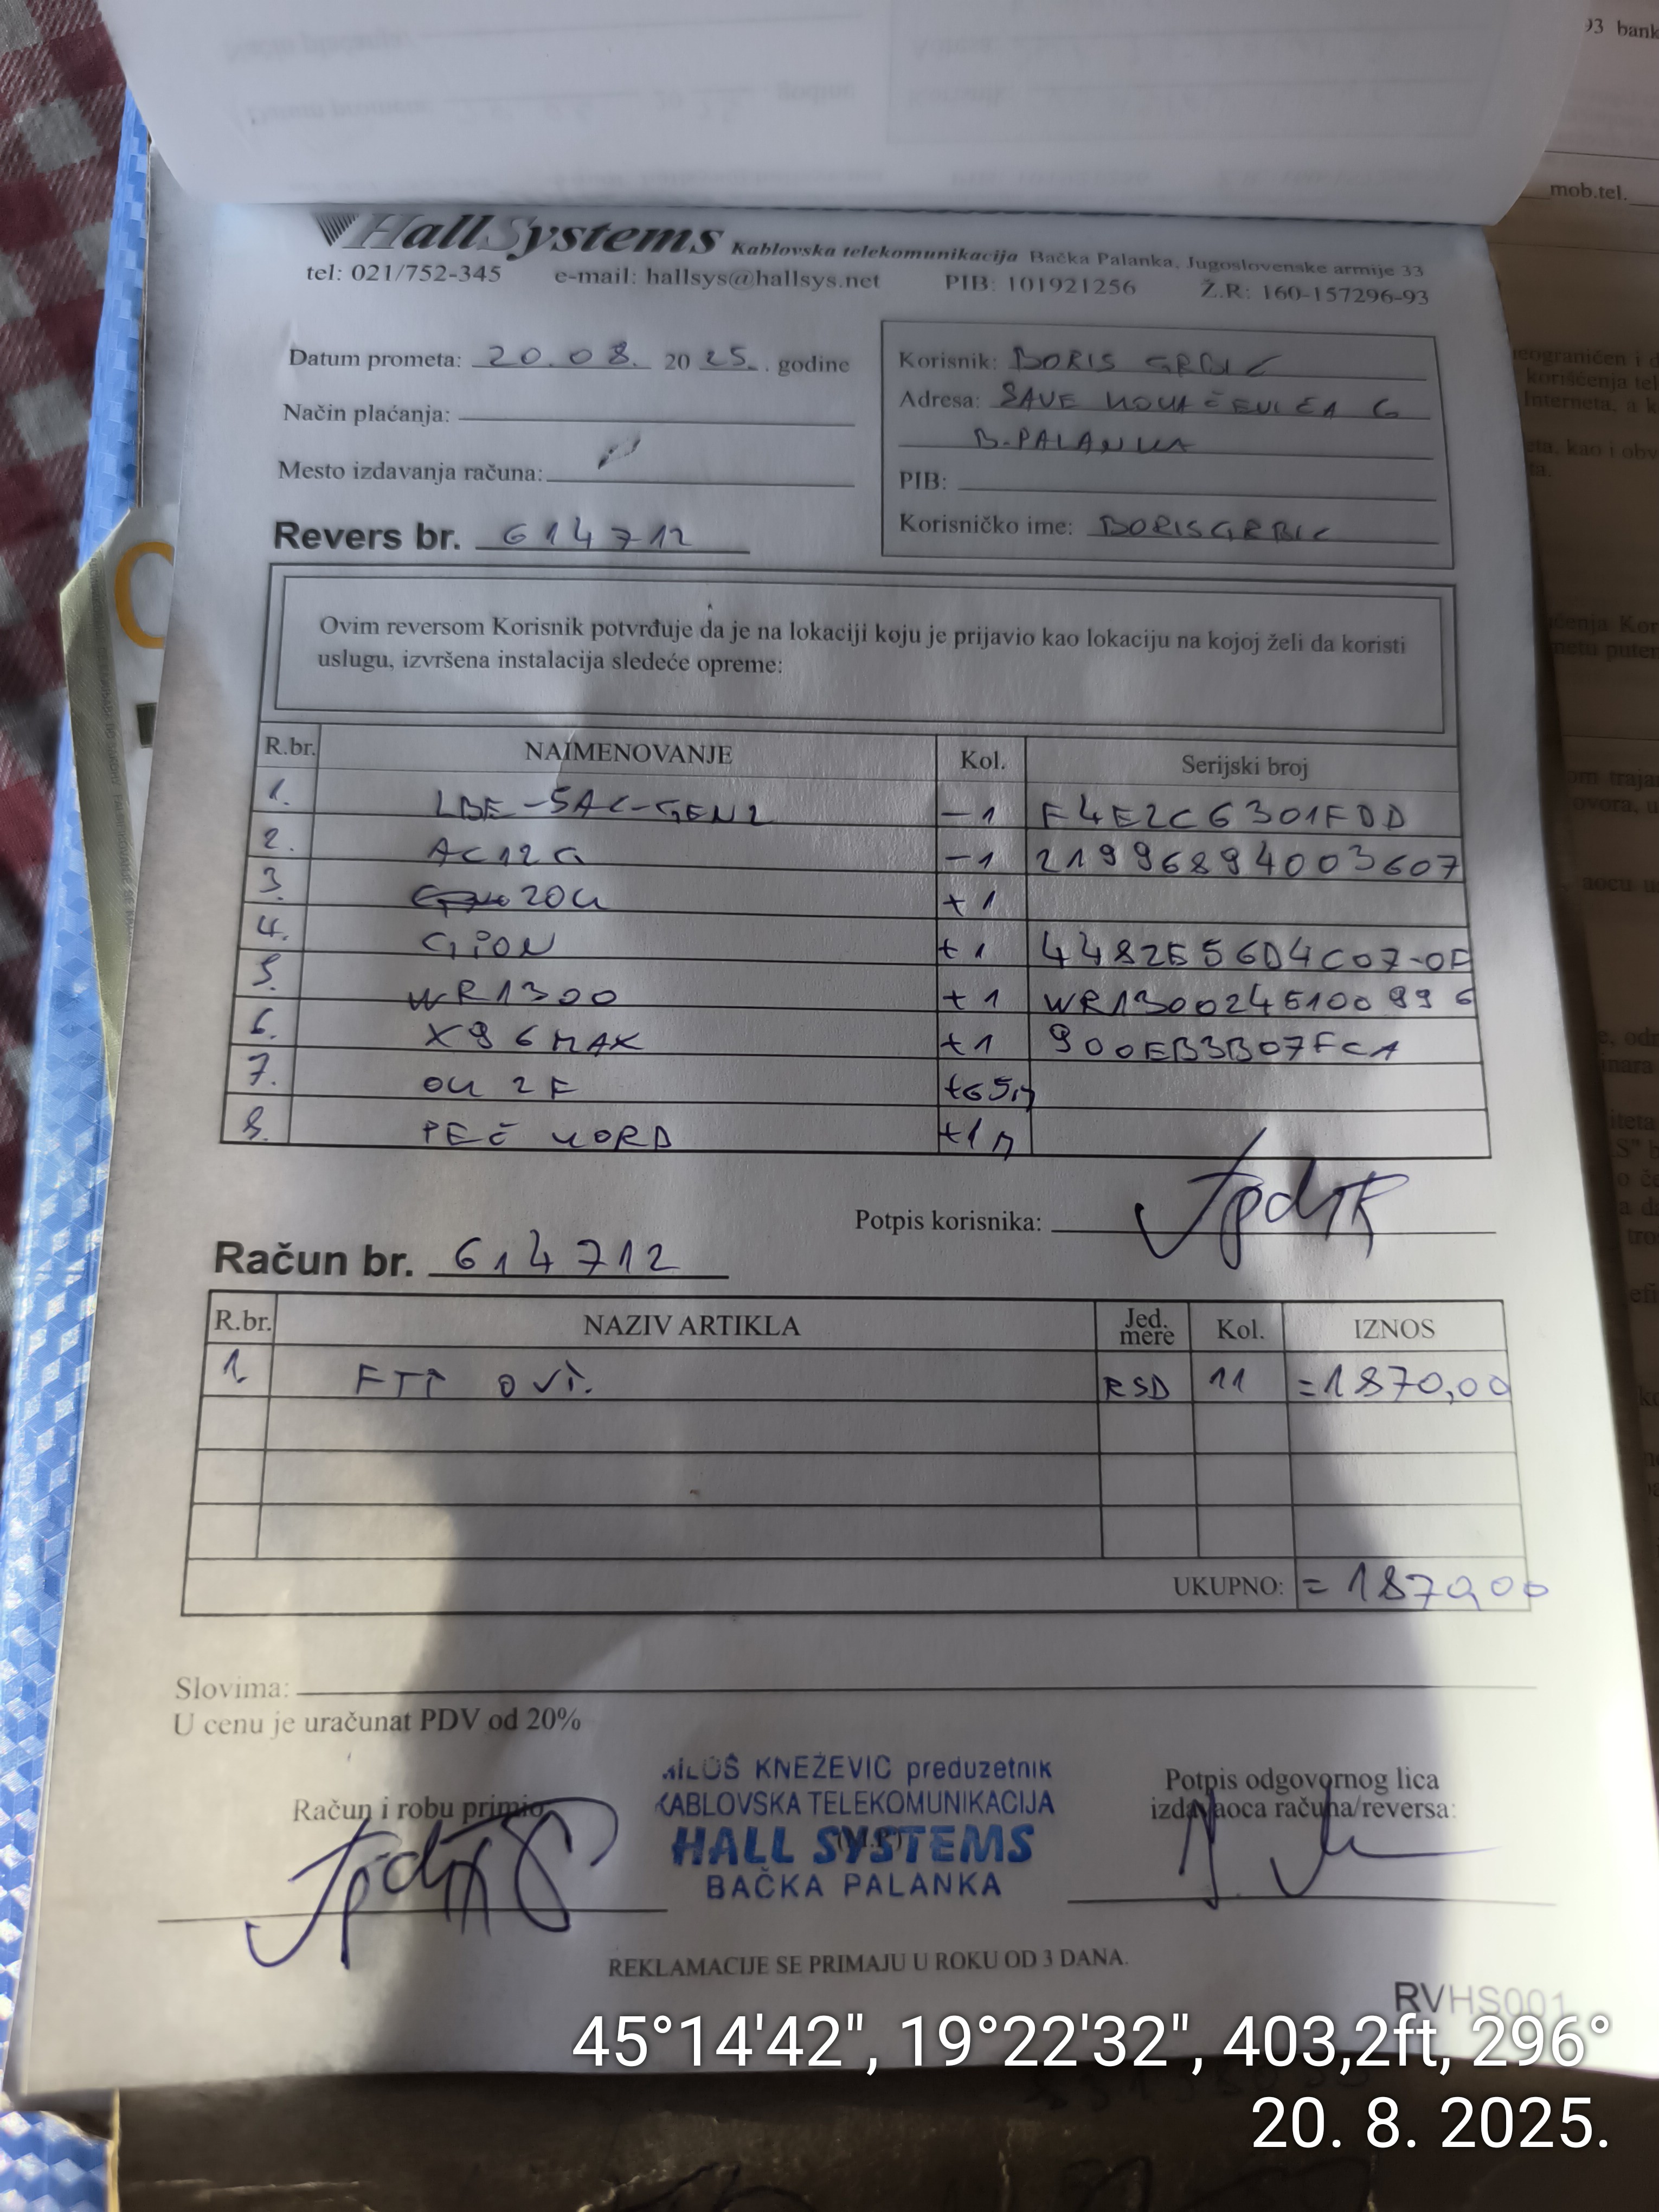 93 bank
mob.tel.
HallSystems Kablovska telekomunikacija Bačka Palanka, Jugoslovenske armije 33
tel: 021/752-345 e-mail: hallsys@hallsys.net PIB: 101921256 Ž.R: 160-157296-93
Datum prometa: 20.08. 20 25. . godine
Način plaćanja:
Mesto izdavanja računa:
Korisnik: BORIS GRBIĆ
Adresa: SAVE KOVAČEVIĆA 6
B. PALANKA
PIB:
Korisničko ime: BORISGRBIC
Revers br. 614712
Ovim reversom Korisnik potvrđuje da je na lokaciji koju je prijavio kao lokaciju na kojoj želi da koristi
uslugu, izvršena instalacija sledeće opreme:
R.br. NAIMENOVANJE Kol. Serijski broj
1. LBE-5AC-GEN2 -1 F4E2C6301FDD
2. AC12G -1 21996894003607
3. ZOK +1
4. GPON +1 4482E556D4C07-0F
5. WR1300 +1 WR1300245100996
6. X96MAX +1 900EB3B07FCA
7. OK 2F +65m
8. PEČ KORD +1m
Potpis korisnika:
Račun br. 614712
R.br. NAZIV ARTIKLA Jed. mere Kol. IZNOS
1. RSD 11 =1870,00
UKUPNO: =1870,00
Slovima:
U cenu je uračunat PDV od 20%
Račun i robu primio
MILOŠ KNEŽEVIĆ preduzetnik
KABLOVSKA TELEKOMUNIKACIJA
HALL SYSTEMS
BAČKA PALANKA
Potpis odgovornog lica
izdavaoca računa/reversa:
REKLAMACIJE SE PRIMAJU U ROKU OD 3 DANA.
RVHS001
45°14'42", 19°22'32", 403,2ft, 296°
20. 8. 2025.